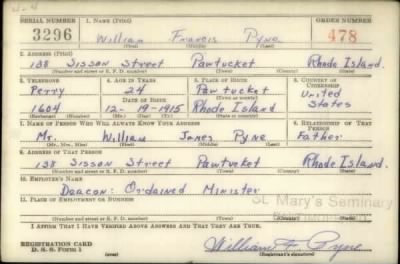 SERIAL NUMBER 1. NAME (Print) ORDER NUMBER
3296 William Francis Pyne 478
(First) (Middle) (Last)
2. ADDRESS (Print)
138 Sisson Street Pawtucket Rhode Island.
(Number and street or R. F. D. number) (Town) (County) (State)
3. TELEPHONE 4. AGE IN YEARS 5. PLACE OF BIRTH 6. COUNTRY OF CITIZENSHIP
Perry 24 Pawtucket United
DATE OF BIRTH (Town or county)
1604 12-19-1915 Rhode Island States
(Exchange) (Number) (Mo.) (Day) (Yr.) (State or country)
7. NAME OF PERSON WHO WILL ALWAYS KNOW YOUR ADDRESS 8. RELATIONSHIP OF THAT PERSON
Mr. William James Pyne Father
(Mr., Mrs., Miss) (First) (Middle) (Last)
9. ADDRESS OF THAT PERSON
138 Sisson Street Pawtucket Rhode Island.
(Number and street or R. F. D. number) (Town) (County) (State)
10. EMPLOYER'S NAME
Deacon: Ordained Minister
11. PLACE OF EMPLOYMENT OR BUSINESS
St. Mary's Seminary
(Number and street or R. F. D. number) (Town) (County) (State)
I AFFIRM THAT I HAVE VERIFIED ABOVE ANSWERS AND THAT THEY ARE TRUE.
REGISTRATION CARD
D. S. S. Form 1 William F. Pyne
(Registrant's signature)